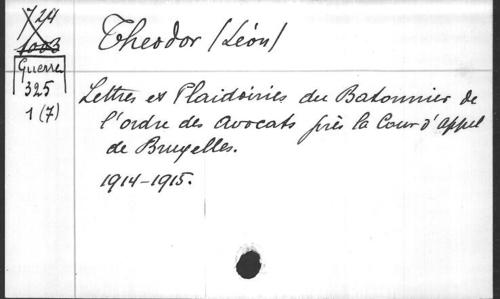 724
1003
Theodor (Léon)
Guerre
325
1 (7)
Lettres et Plaidoiries du Batonnier de
l'ordre des avocats près la Cour d'Appel
de Bruxelles.
1914-1915.